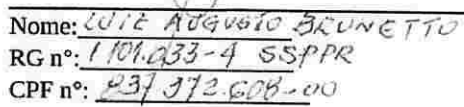 Nome: LUIZ AUGUSTO BRUNETTO
RG nº: 1101.033-4 SSPPR
CPF nº: 837 372.608-00